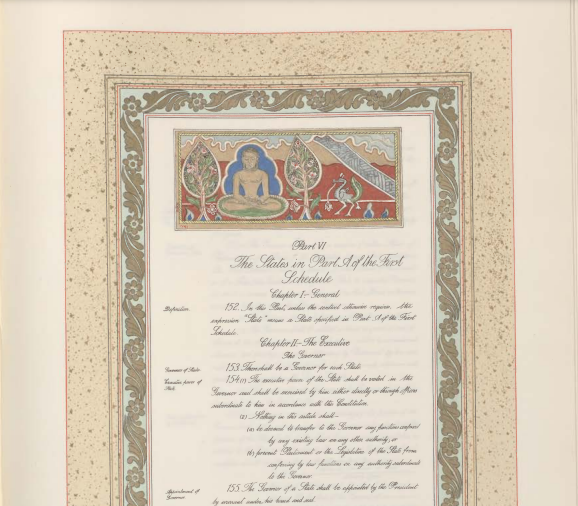 Part VI
The States in Part A of the First
Schedule
Chapter I.— General
Definition. 152. In this Part, unless the context otherwise requires, the
expression "State" means a State specified in Part A of the First
Schedule.
Chapter II.—The Executive
The Governor
Governor of States. 153. There shall be a Governor for each State.
Executive power of
State. 154. (1) The executive power of the State shall be vested in the
Governor and shall be exercised by him either directly or through officers
subordinate to him in accordance with this Constitution.
(2) Nothing in this article shall—
(a) be deemed to transfer to the Governor any functions conferred
by any existing law on any other authority; or
(b) prevent Parliament or the Legislature of the State from
conferring by law functions on any authority subordinate
to the Governor.
Appointment of
Governor. 155. The Governor of a State shall be appointed by the President
by warrant under his hand and seal.